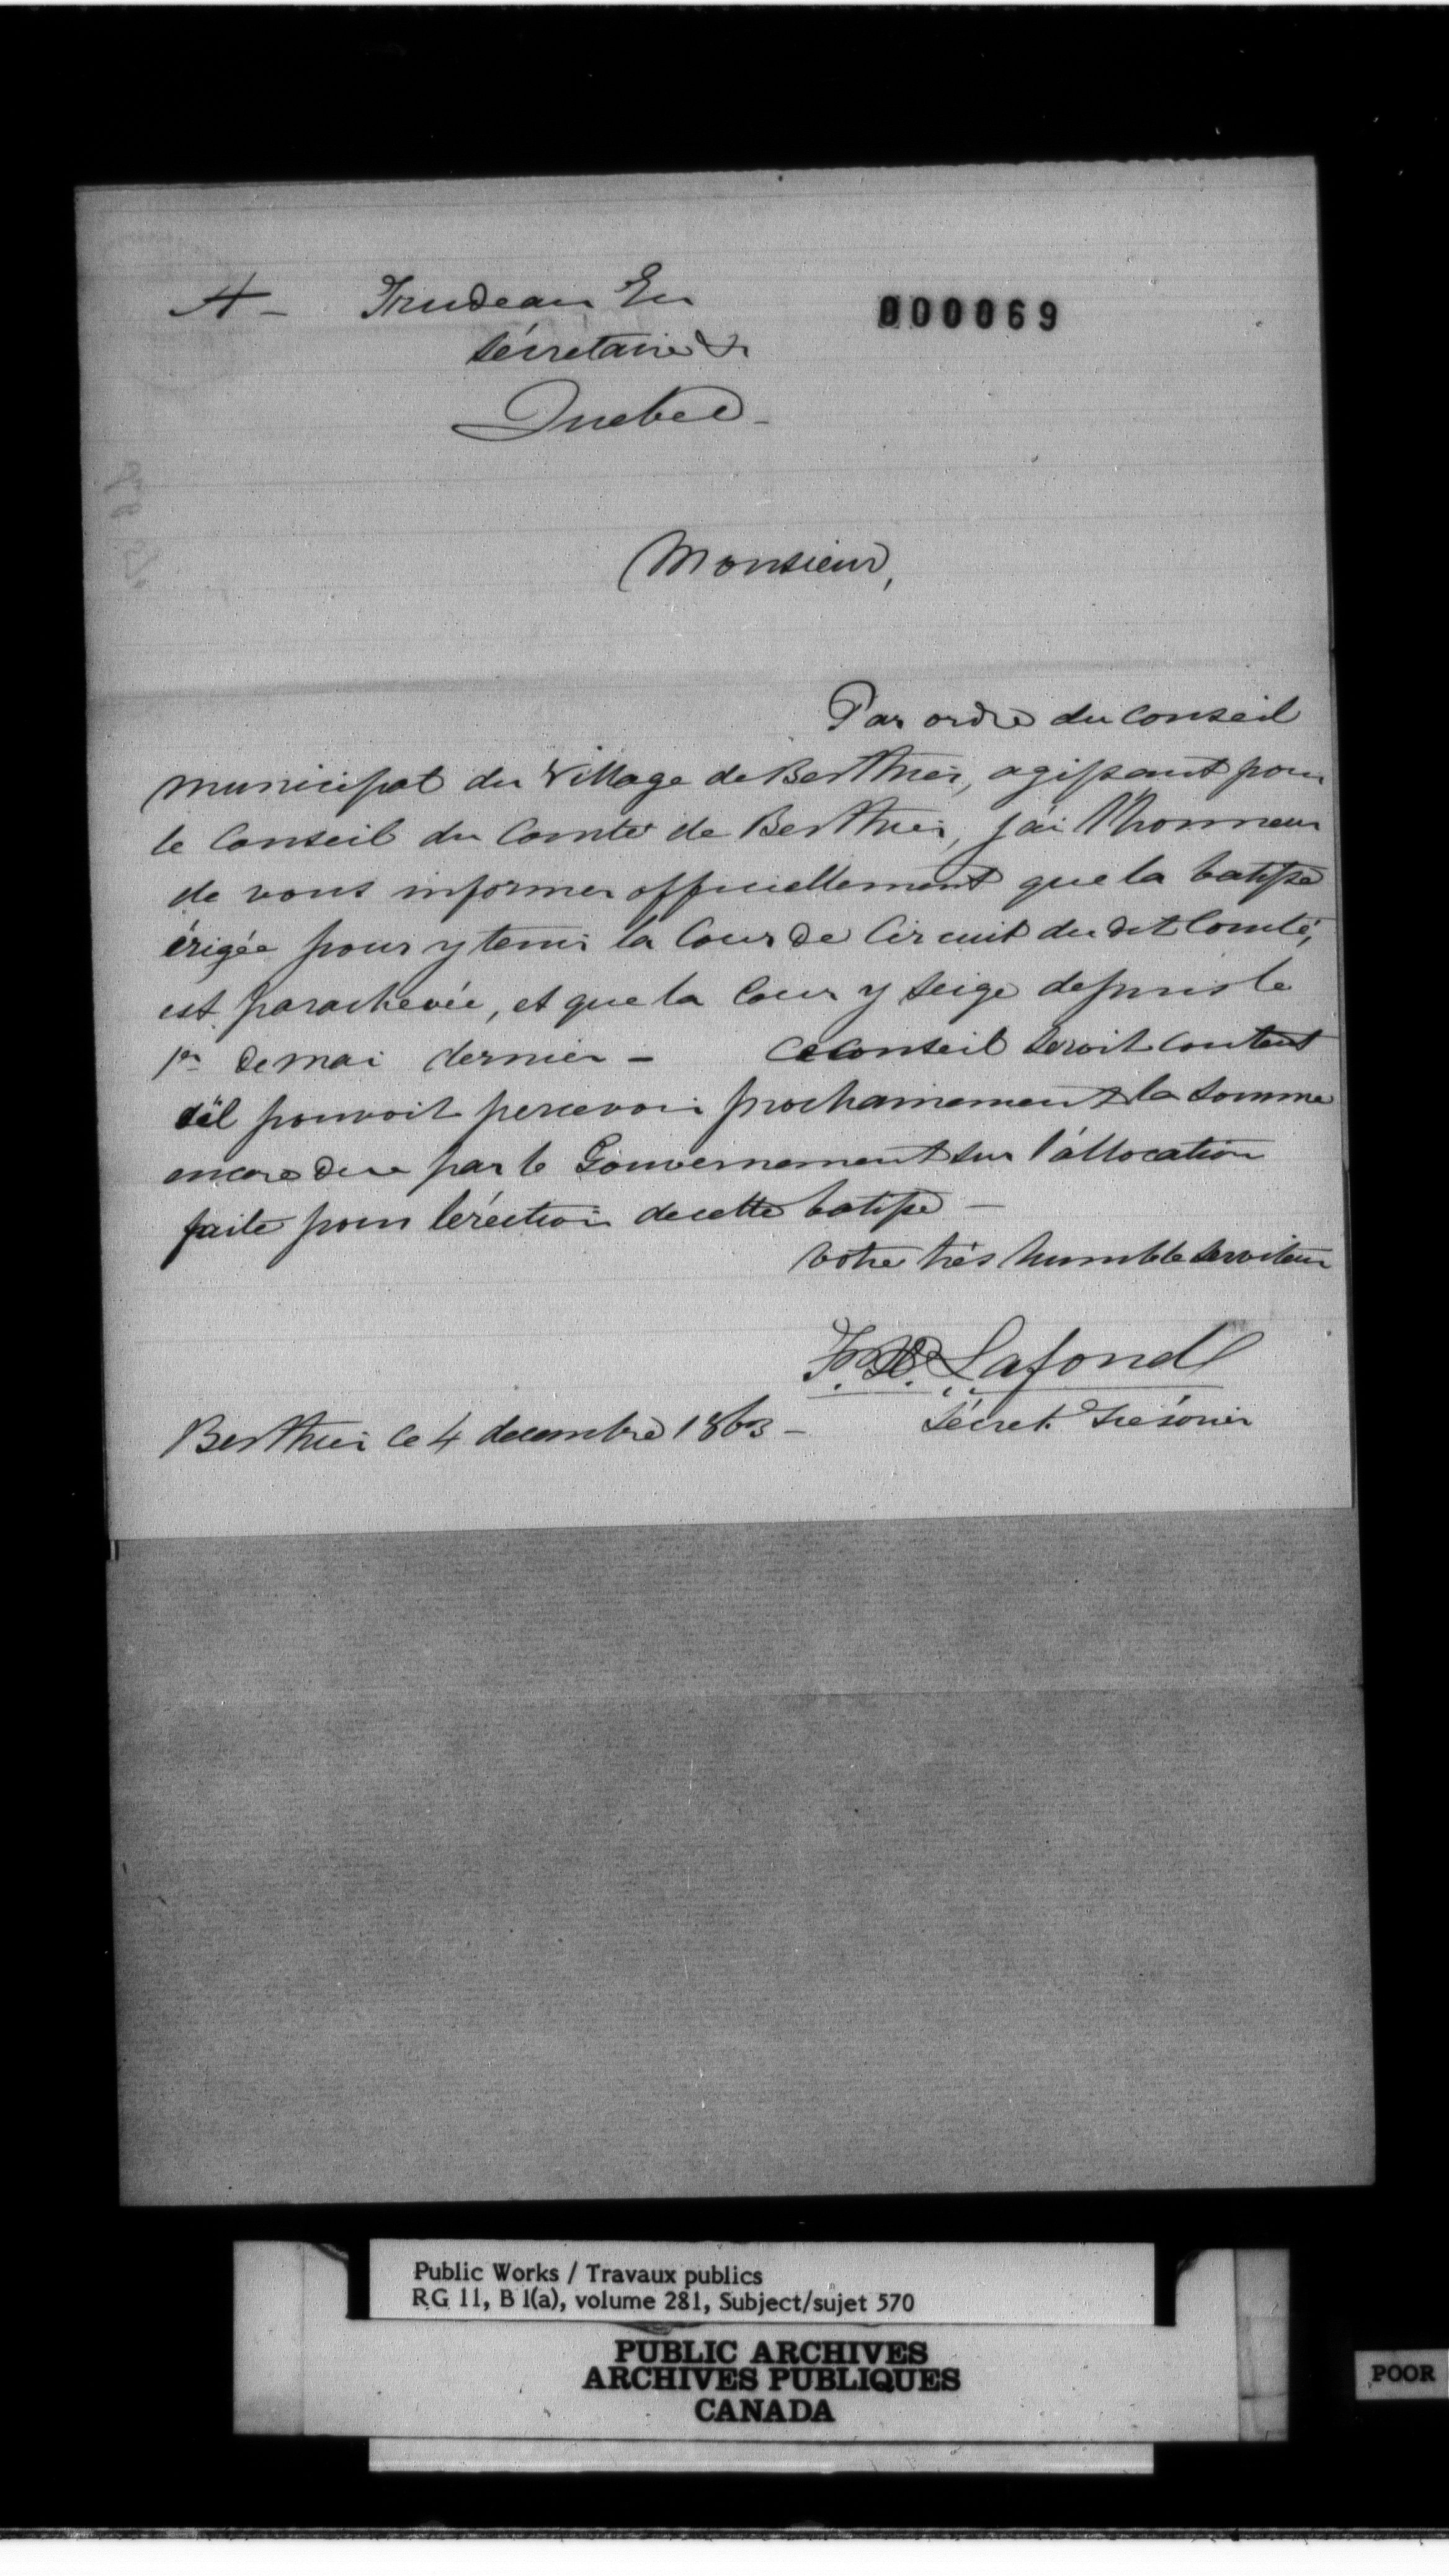 A - Trudeau Ecr
Sécretaire &
Quebec -
000069
Monsieur,
Par ordre du Conseil
municipal du Village de Berthier, agissant pour
le Conseil du Comté de Berthier, j'ai l'honneur
de vous informer officiellement que la batisse
érigée pour y tenir la Cour de Circuit du dit Comté,
est parachevée, et que la Cour y seige depuis le
1er de mai dernier - Ce conseil seroit content
s'il pouvoit percevoir prochainement la somme
encore due par le Gouvernement sur l'allocation
faite pour l'érection de cette batisse -
Votre très humble serviteur
Lafond
Sécret. Trésorier
Berthier ce 4 decembre 1863 -
Public Works / Travaux publics
RG 11, B 1(a), volume 281, Subject/sujet 570
PUBLIC ARCHIVES
ARCHIVES PUBLIQUES
CANADA
POOR